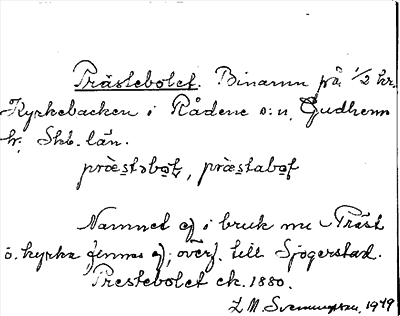 Prästebolet. Binamn på 1/2 hr.
Kyrkebacken i Rådene s:n, Gudhems
hr, Skb. län.
præstəbo̤t, præstabo̤t
Namnet ej i bruk nu. Präst
o. kyrka finnas ej; överf. till Sjögerstad.
Prestebolet ek. 1880.
1949